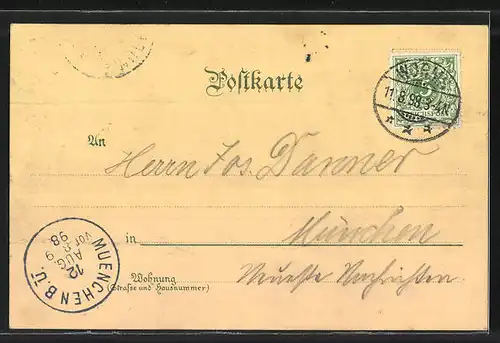 Postkarte
WORMS
11.8.98.3-4N.
An
Herrn Jos. Danner
in
München
Wohnung
(Strasse und Hausnummer)
Neueste Nachrichten
MUENCHEN B. Ü.
12
AUG. 9
Vor. 8-
98